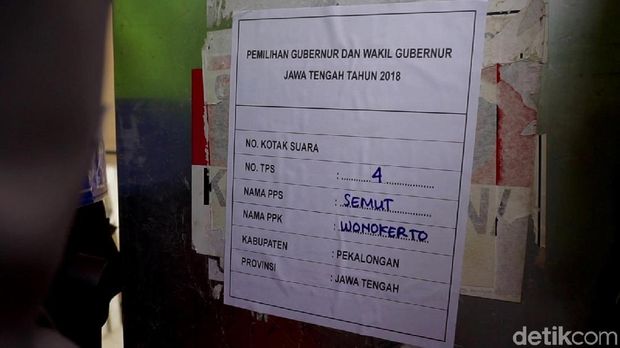 PEMILIHAN GUBERNUR DAN WAKIL GUBERNUR
JAWA TENGAH TAHUN 2018
NO. KOTAK SUARA
NO. TPS : 4
NAMA PPS : SEMUT
NAMA PPK : WONOKERTO
KABUPATEN : PEKALONGAN
PROVINSI : JAWA TENGAH
detikcom